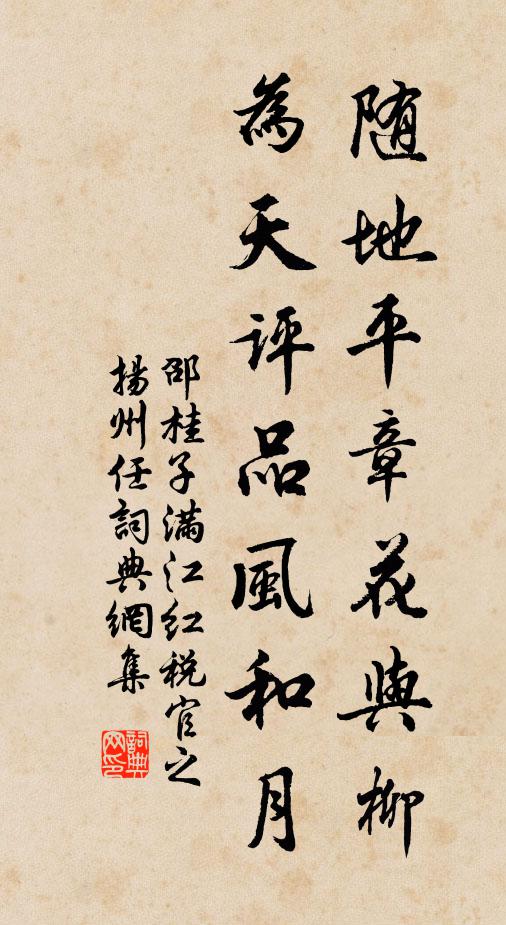 随地平章花與柳
為天評品風和月
邵桂子满江红税官之
揚州任詞典網集
詞典
网印